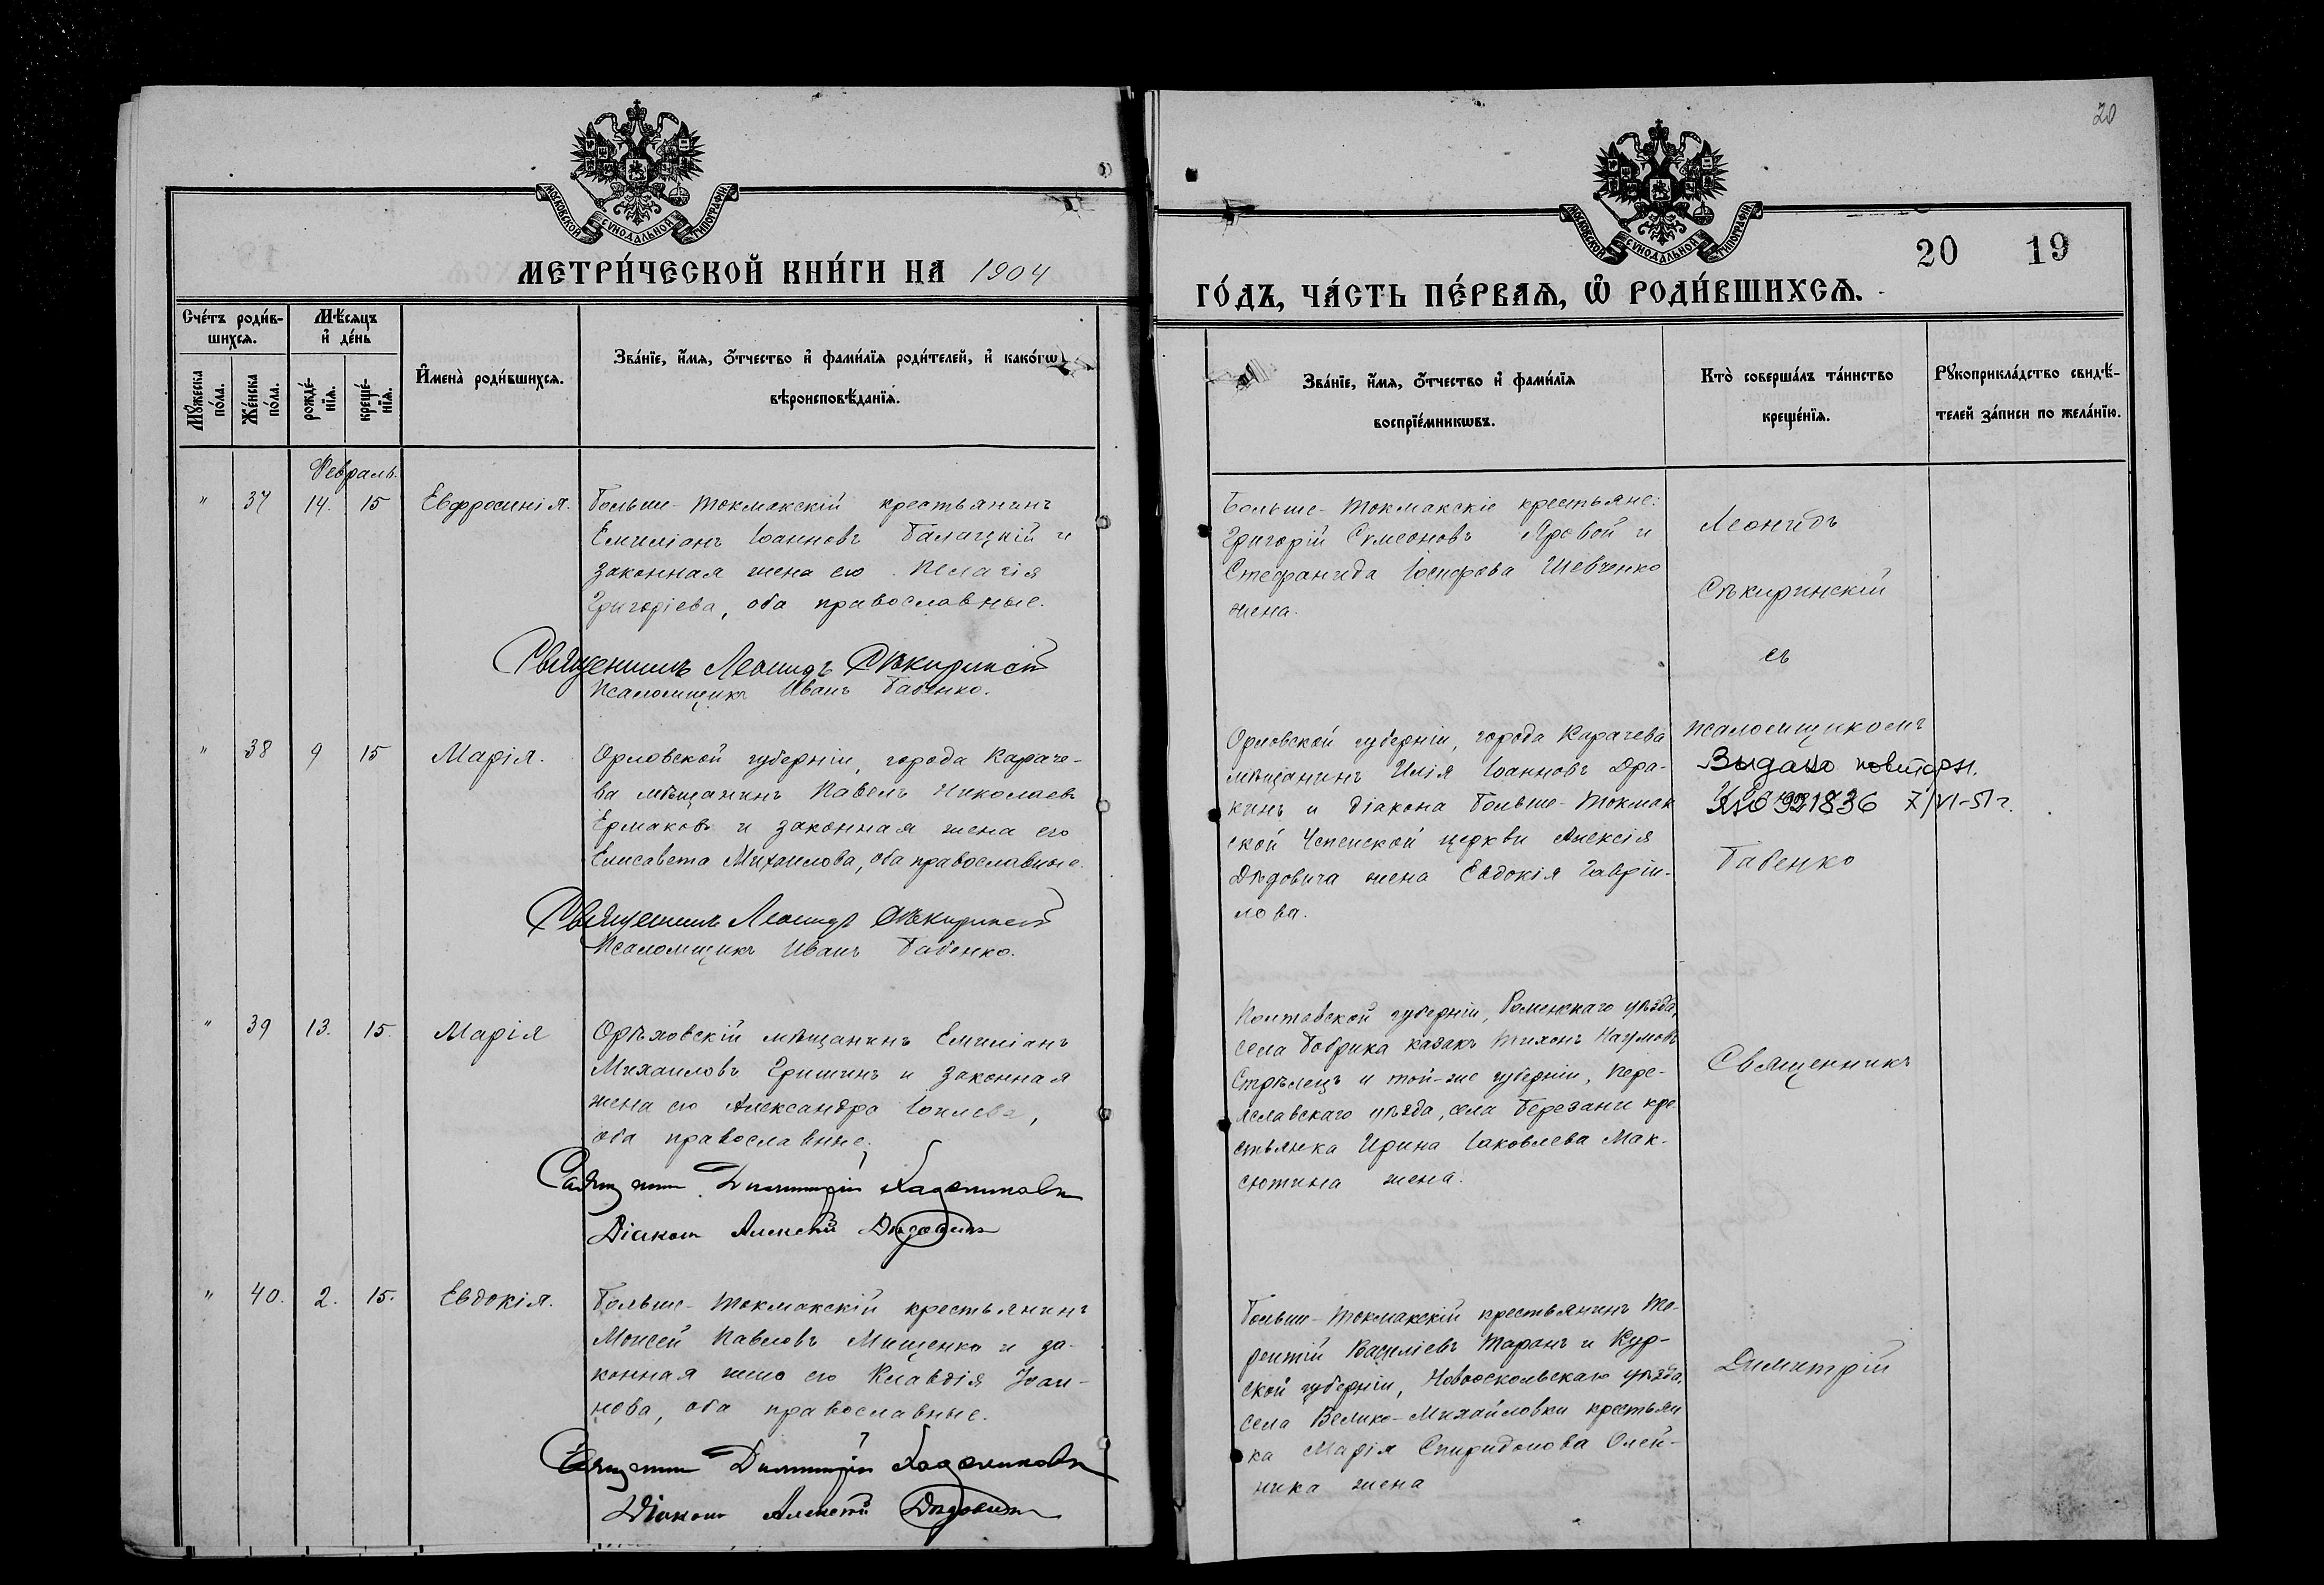 20
МОСКОВСКОЙ СУНОДАЛЬНОЙ ТИПОГРАФІИ
МЕТРИ́ЧЕСКОЙ КНИ́ГИ НА 1904
Сче́тъ роди́в-
шихсѧ.
Мꙋ́жеска
по́ла.
Же́нска
по́ла.
Мѣ́сѧцъ
и҆ де́нь
рожде́-
нїѧ.
креще́-
нїѧ.
И҆мена̀ роди́вшихсѧ.
Зва́нїе, и҆́мѧ, ѻ҆́тчество и҆ фами́лїѧ роди́телей, и҆ како́гѡ
вѣроисповѣ́данїѧ.
Февраль.
" 37 14. 15 Евфросинія.
Больше-Токмакскій крестьянинъ
Емиліанъ Іоанновъ Балацкій и
законная жена его Пелагія
Григоріева, оба православные.
Священникъ Леонидъ Сѣкиринскій
Псаломщикъ Иванъ Бабенко.
" 38 9 15 Марія.
Орловской губерніи, города Караче-
ва мѣщанинъ Павелъ Николаевъ
Ермаковъ и законная жена его
Елисавета Михаилова, оба православные.
Священникъ Леонидъ Сѣкиринскій
Псаломщикъ Иванъ Бабенко.
" 39 13. 15. Марія
Орѣховскій мѣщанинъ Емиліанъ
Михаиловъ Гришинъ и законная
жена его Александра
оба православные.
Священникъ Димитрій
Діаконъ Алексѣй Дѣдовичъ
" 40. 2. 15. Евдокія.
Больше-Токмакскій крестьянинъ
Моисей Павловъ Мищенко и за-
конная жена его Клавдія Іоан-
нова, оба православные.
Священникъ Димитрій
Діаконъ Алексѣй Дѣдовичъ
20
19
МОСКОВСКОЙ СУНОДАЛЬНОЙ ТИПОГРАФІИ
ГО́ДЪ, ЧА́СТЬ ПЕ́РВАѦ, Ѡ҆ РОДИ́ВШИХСѦ.
Зва́нїе, и҆́мѧ, ѻ҆́тчество и҆ фами́лїѧ
воспрїе́мникѡвъ.
Кто̀ соверша́лъ та́инство
креще́нїѧ.
Рꙋкоприкла́дство свидѣ́-
телей за́писи по жела́нїю.
Больше-Токмакскіе крестьяне:
Григорій Сѵмеоновъ Яровой и
Стефанида Іосифова Шевченко
жена.
Леонидъ
Сѣкиринскій
съ
Орловской губерніи, города Карачева
мѣщанинъ Илія Іоанновъ Дра-
кинъ и діакона Больше-Токмак
ской Успенской церкви Алексія
Дѣдовича жена Евдокія Гаврiи-
лова.
псаломщикомъ
Выдано повторн.
921836 7/VI-51 г.
Бабенко
Полтавской губерніи, Роменскаго уѣзда,
села Бобрика казакъ Тихонъ Наумовъ
Стрѣлецъ и той-же губерніи, Пере-
яславскаго уѣзда, села Березани кре-
стьянка Ирина Іаковлева Мак-
сютина жена.
Священникъ
Больше-Токмакскій крестьянинъ Те-
рентій Василіевъ Таранъ и Кур-
ской губерніи, Новооскольскаго уѣзда,
села Велико-Михайловки крестьян
ка Марія Спиридонова Олей-
ника жена
Димитрій